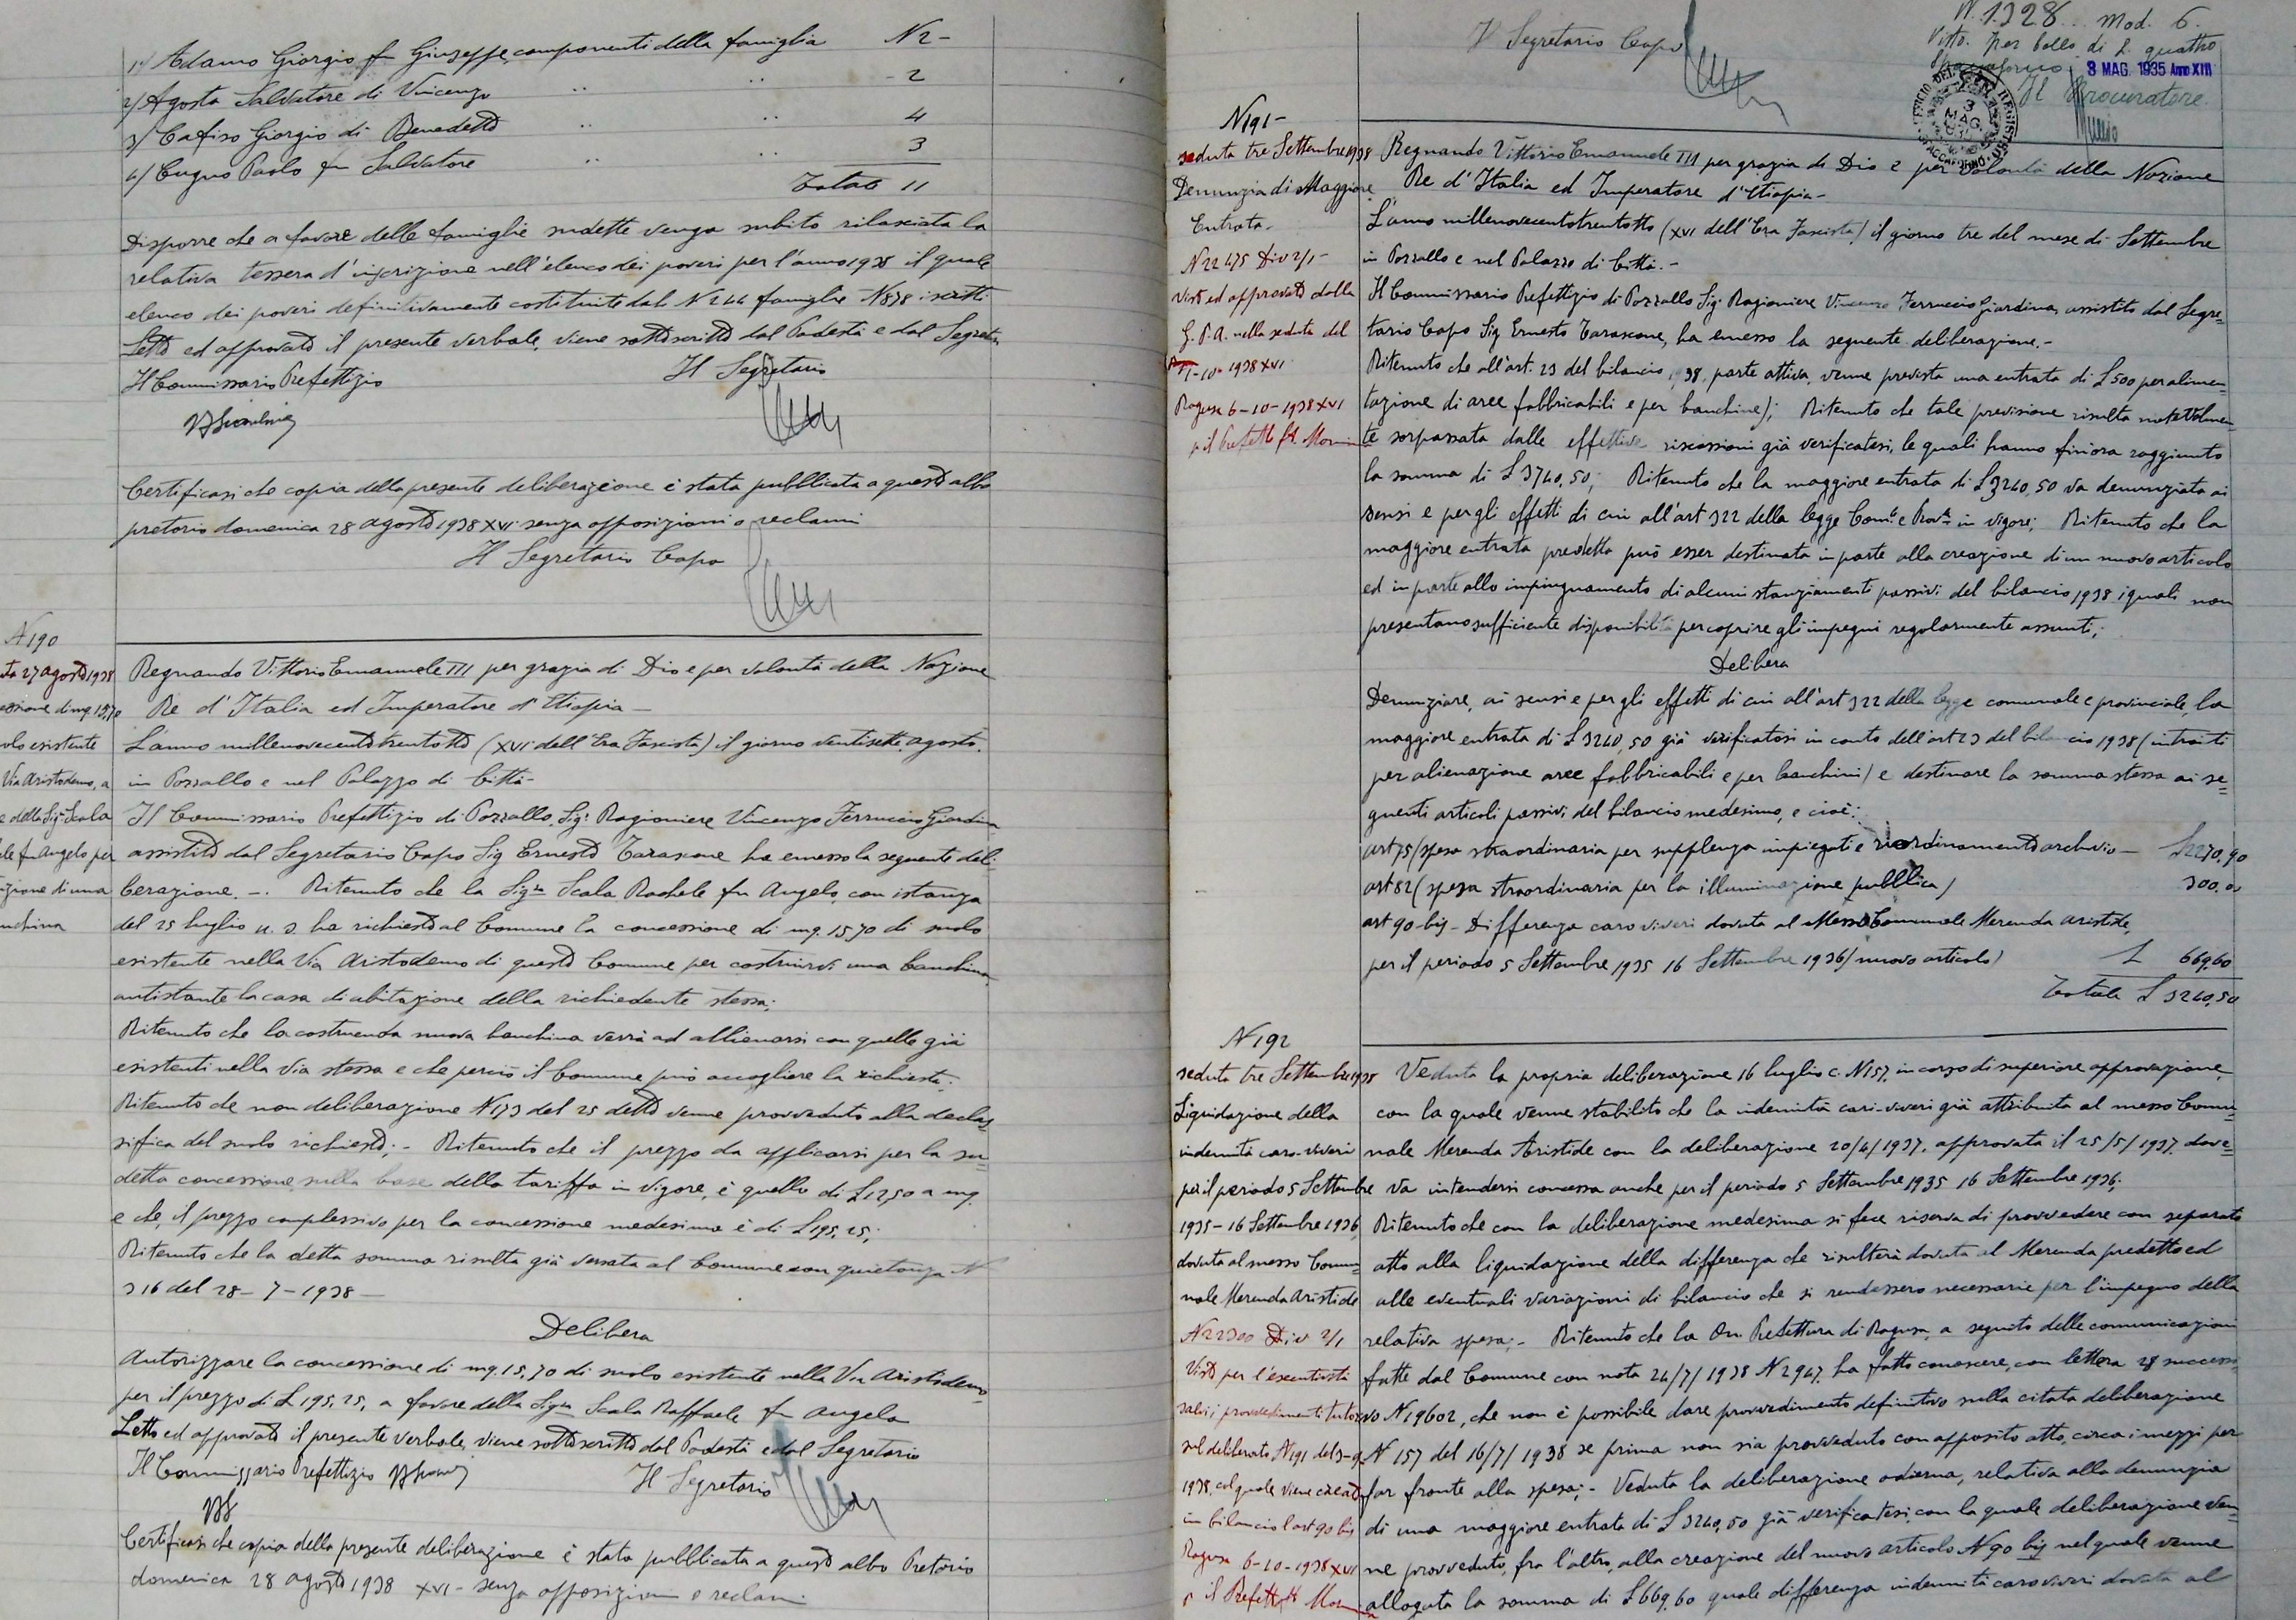 1°/ Adamo Giorgio fu Giuseppe, componenti della famiglia N 2 -
2/ Agosta Salvatore di Vincenzo " " - 2
3/ Cafiso Giorgio di Benedetto " " 4
4/ Cugno Paolo fu Salvatore " " 3
Totale 11
Disporre che a favore delle famiglie sudette venga subito rilasciata la
relativa tessera d'iscrizione nell'elenco dei poveri per l'anno 1938 il quale
elenco dei poveri definitivamente costituite dal N 244 famiglie N 878 iscritti
Letto ed approvato il presente verbale, viene sottoscritto dal Podestà e dal Segretario
Il Commissario Prefettizio Il Segretario
Certificasi che copia della presente deliberazione è stata pubblicata a questo albo
pretorio domenica 28 agosto 1938 XVI senza opposizioni o reclami
Il Segretario Capo
N 190
27 agosto 1938
di mq. 15,70
esistente
Via Aristodemo, a
della Sig.ra Scala
fu Angelo per
di una
Regnando Vittorio Emanuele III per grazia di Dio e per volontà della Nazione
Re d'Italia ed Imperatore d'Etiopia -
L'anno millenovecentotrentotto (XVI dell'Era Fascista) il giorno ventisette agosto.
in Pozzallo e nel Palazzo di Città -
Il Commissario Prefettizio di Pozzallo, Sig. Ragioniere Vincenzo Ferruccio Giardina
assistito dal Segretario Capo Sig Ernesto Tarascone ha emesso la seguente deli-
berazione. -. Ritenuto che la Sig.ra Scala Rachele fu Angelo, con istanza
del 25 luglio u. s. ha richiesto al Comune la concessione di mq. 15,70 di suolo
esistente nella Via Aristodemo di questo Comune per costruirvi una banchina
antistante la casa di abitazione della richiedente stessa;
Ritenuto che la costruenda nuova banchina verrà ad allinearsi con quelle già
esistenti nella via stessa e che perciò il Comune può accogliere la richiesta;
Ritenuto che non deliberazione N 173 del 25 detto venne provveduto alla declas-
sifica del suolo richiesto; - Ritenuto che il prezzo da applicarsi per la su-
detta concessione, sulla base della tariffa in vigore, è quello di £ 12,50 a mq.
e che, il prezzo complessivo per la concessione medesima è di £ 195,25;
Ritenuto che la detta somma risulta già versata al Comune con quietanza N
316 del 28 - 7 - 1938 -
Delibera
Autorizzare la concessione di mq. 15,70 di suolo esistente nella Via Aristodemo
per il prezzo di £ 195,25, a favore della Sig.ra Scala Raffaele fu Angelo
Letto ed approvato il presente verbale, viene sottoscritto dal Podestà e dal Segretario
Il Commissario Prefettizio Il Segretario
Certificasi che copia della presente deliberazione è stata pubblicata a questo albo Pretorio
domenica 28 agosto 1938 XVI - senza opposizioni o reclami.
Il Segretario Capo
N. 1328 Mod. 6.
Visto per bollo di L. quattro
3 MAG. 1935 Anno XIII
Il Procuratore
N 191 -
seduta tre Settembre 1938
Denunzia di Maggiore
Entrata -
N 22475 Div 2/1 -
Visto ed approvato dalla
G. P. A. nella seduta del
1-10-1938 XVI
Ragusa 6-10-1938 XVI
p. il Prefetto
Regnando Vittorio Emanuele III per grazia di Dio e per volontà della Nazione
Re d'Italia ed Imperatore d'Etiopia -
L'anno millenovecentotrentotto (XVI dell'Era Fascista) il giorno tre del mese di Settembre
in Pozzallo e nel Palazzo di Città. -
Il Commissario Prefettizio di Pozzallo Sig. Ragioniere Vincenzo Ferruccio Giardina, assistito dal Segre-
tario Capo Sig Ernesto Tarascone, ha emesso la seguente deliberazione. -
Ritenuto che all'art. 23 del bilancio 1938, parte attiva, venne prevista una entrata di £ 500 per alimen-
tazione di aree fabbricabili e per banchine); Ritenuto che tale previsione risulta notevolmen-
te sorpassata dalle effettive riscossioni già verificatesi, le quali hanno finiora raggiunto
la somma di £ 3740,50; Ritenuto che la maggiore entrata di £ 3240,50 va denunziata ai
sensi e per gli effetti di cui all'art 322 della legge Com.le e Prov.le in vigore; Ritenuto che la
maggiore entrata predetta può esser destinata in parte alla creazione di un nuovo articolo
ed in parte allo impinguamento di alcuni stanziamenti passivi del bilancio 1938 i quali non
presentano sufficiente disponibilità per coprire gli impegni regolarmente assunti;
Delibera
Denunziare, ai sensi e per gli effetti di cui all'art 322 della legge comunale e provinciale, la
maggiore entrata di £ 3240,50 già verificatosi in conto dell'art 23 del bilancio 1938 (introiti
per alienazione aree fabbricabili e per banchini) e destinare la somma stessa ai se-
guenti articoli passivi del bilancio medesimo, e cioè:
art 75 (spesa straordinaria per supplenza impiegati e riordinamento archivio - £ 2270,90
art 82 (spesa straordinaria per la illuminazione pubblica) 300,00
art 90-bis - Differenza caro viveri dovuta al Messo Comunale Merenda Aristide,
per il periodo 5 Settembre 1935 16 Settembre 1936 (nuovo articolo) £ 669,60
Totale £ 3240,50
N 192
seduta tre Settembre 1938
Liquidazione della
indennità caro-viveri
per il periodo 5 Settembre
1935 - 16 Settembre 1936
dovuta al messo Comu-
nale Merenda Aristide
N 22300 Div 2/1
Visto per l'esecutività
salvi i provvedimenti tutori
sul deliberato N 191 del 3-9
1938, col quale viene creato
in bilancio l'art 90 bis
Ragusa 6-10-1938 XVI
p. il Prefetto
Veduta la propria deliberazione 16 luglio c. N 157, in corso di superiore approvazione,
con la quale venne stabilito che la indennità caro-viveri già attribuita al messo Comu-
nale Merenda Aristide con la deliberazione 20/4/1937, approvata il 25/5/1937, dove-
va intendersi concessa anche per il periodo 5 Settembre 1935 16 Settembre 1936;
Ritenuto che con la deliberazione medesima si fece riserva di provvedere con separato
atto alla liquidazione della differenza che risulterà dovuta al Merenda predetto ed
alle eventuali variazioni di bilancio che si rendessero necessarie per l'impegno della
relativa spesa; - Ritenuto che la On. Prefettura di Ragusa, a seguito delle comunicazioni
fatte dal Comune con nota 24/7/1938 N 2947, ha fatto conoscere, con lettera 28 successi-
vo N 19602, che non è possibile dare provvedimento definitivo sulla citata deliberazione
N 157 del 16/7/1938 se prima non sia provveduto con apposito atto, circa i mezzi per
far fronte alla spesa; - Veduta la deliberazione odierna, relativa alla denunzia
di una maggiore entrata di £ 3240,50 già verificatesi, con la quale deliberazione ven-
ne provveduto, fra l'altro, alla creazione del nuovo articolo N 90 bis nel quale venne
allogata la somma di £ 669,60 quale differenza indennità caroviveri dovuta al